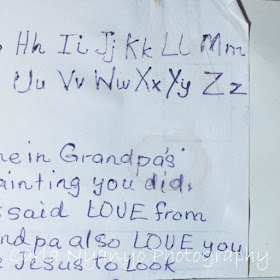 Hh Ii Jj Kk Ll Mm
Uu Vv Ww Xx Yy Zz
in Grandpa's
painting you did.
said LOVE from
Grandpa also LOVE you
Jesus to Look
Nyenyo Photography